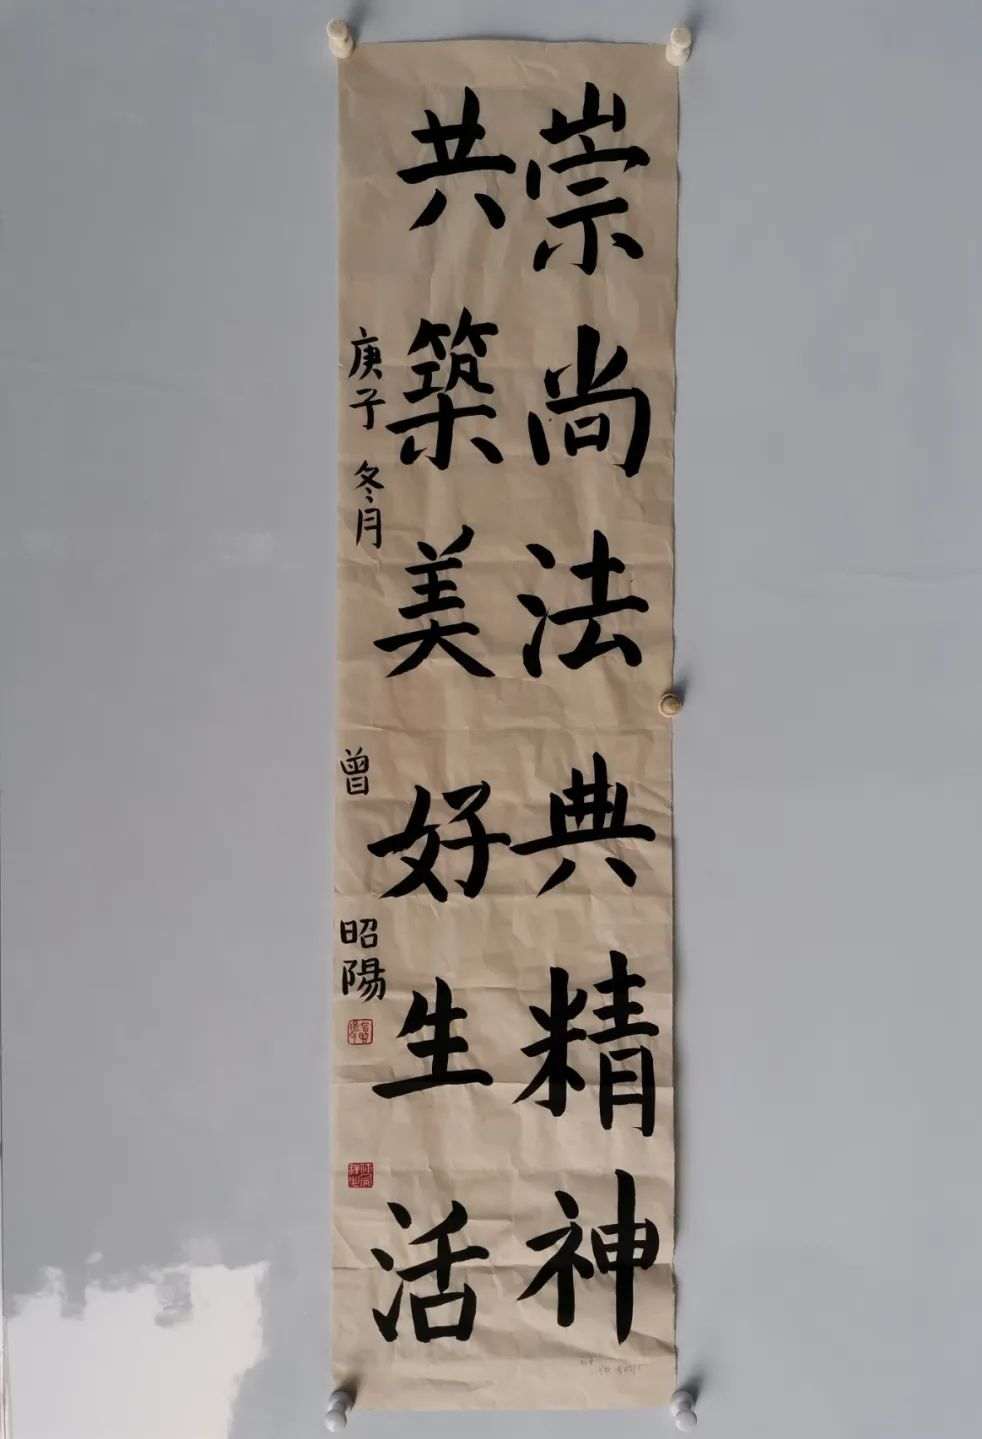 崇尚法典精神
共築美好生活
庚子冬月 曾昭陽